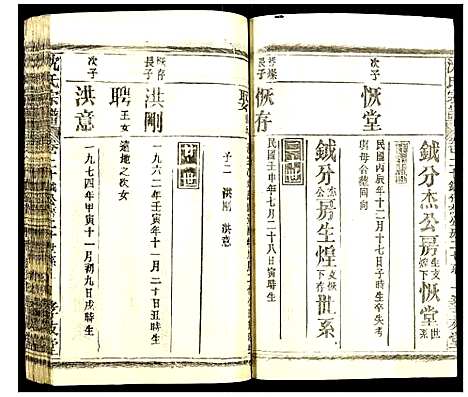 沈氏宗譜
鉞分杰公房生支恢堂世
次子
恢堂
民國丙辰年十二月十七日子時生卒失考
與母合葬同向
鉞分杰公房生煌支恢存下世系
長子
恢存
民國壬申年七月二十八日寅時生
娶
子二 洪剛 洪意
恢存長子
洪剛
一九六二年壬寅年十一月二十日丑時生
聘王女
遠地之次女
次子
洪意
一九七四年甲寅十一月初九日戌時生
沈氏宗譜
孝友堂